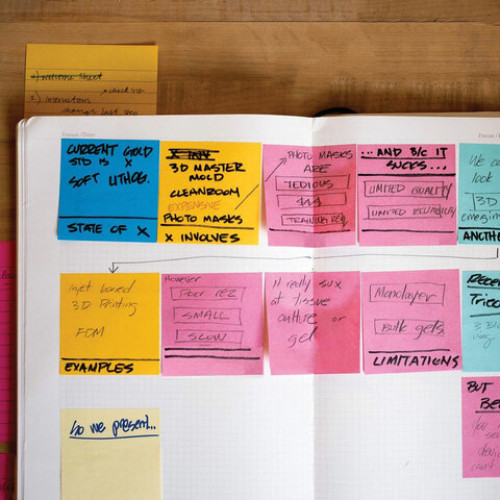 2) INTERVIEWS
CURRENT GOLD
STD IS X
SOFT LITHOG.
STATE OF X
3D MASTER
MOLD
CLEANROOM
EXPENSIVE
PHOTO MASKS
X INVOLVES
PHOTO MASKS
ARE
TEDIOUS
$$$
TRAINING REQ.
...AND B/C IT
SUCKS...
LIMITED QUALITY
LIMITED RELIABILITY
We
look
3D
emerging
ANOTHE
inkjet based
3D Printing
FDM
EXAMPLES
However
POOR REZ
SMALL
SLOW
it really sux
at tissue
culture or
gel
Monolayer
Bulk gels
LIMITATIONS
Tried
BUT
So we present...